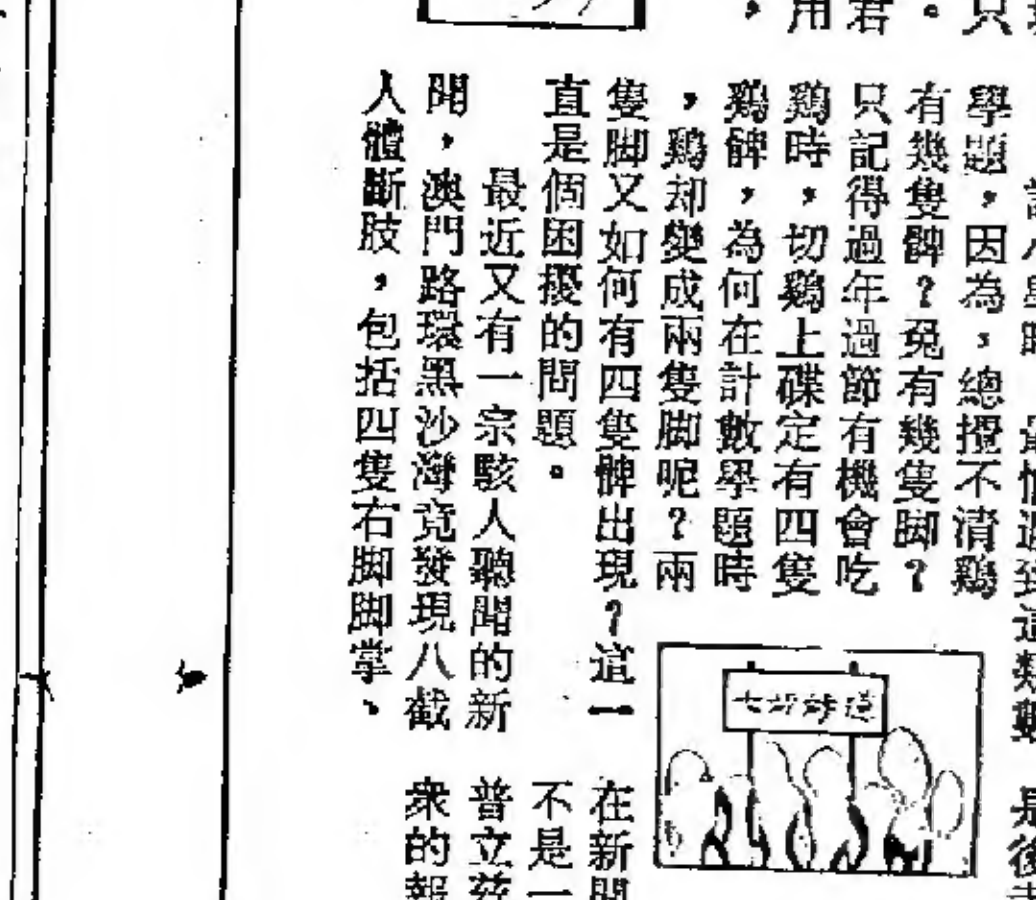 只
。君
，用
學題，因為，總攪不清鷄
有幾隻髀？兔有幾隻脚？
只記得過年過節有機會吃
鷄時，切鷄上碟定有四隻
鷄髀，為何在計數學題時
，鷄却變成兩隻脚呢？兩
隻脚又如何有四隻髀出現？這一
直是個困擾的問題。
最近又有一宗駭人聽聞的新
聞，澳門路環黑沙灣竟發現八截
人體斷肢，包括四隻右脚脚掌、
是後
在新聞
不是一
普立茲
衆的報